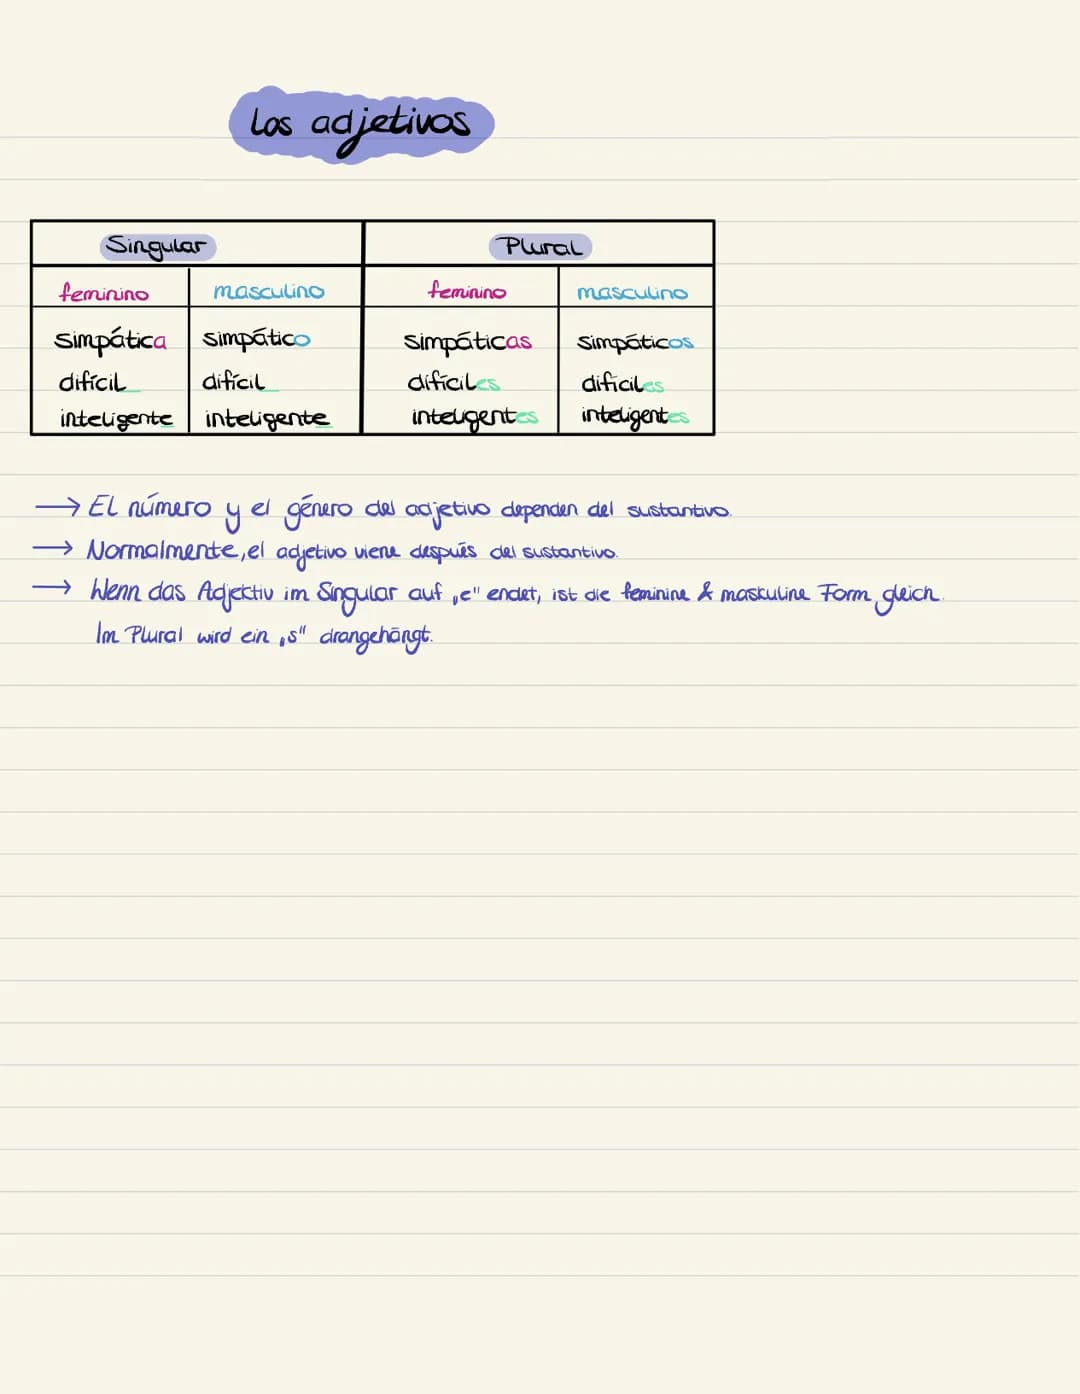 Los adjetivos
Singular Plural
feminino masculino feminino masculino
simpática simpático simpáticas simpáticos
difícil difícil difíciles difíciles
inteligente inteligente inteligentes inteligentes
→ El número y el género del adjetivo dependen del sustantivo.
→ Normalmente, el adjetivo viene después del sustantivo.
→ Wenn das Adjektiv im Singular auf „e" endet, ist die feminine & maskuline Form gleich.
Im Plural wird ein „s" drangehängt.